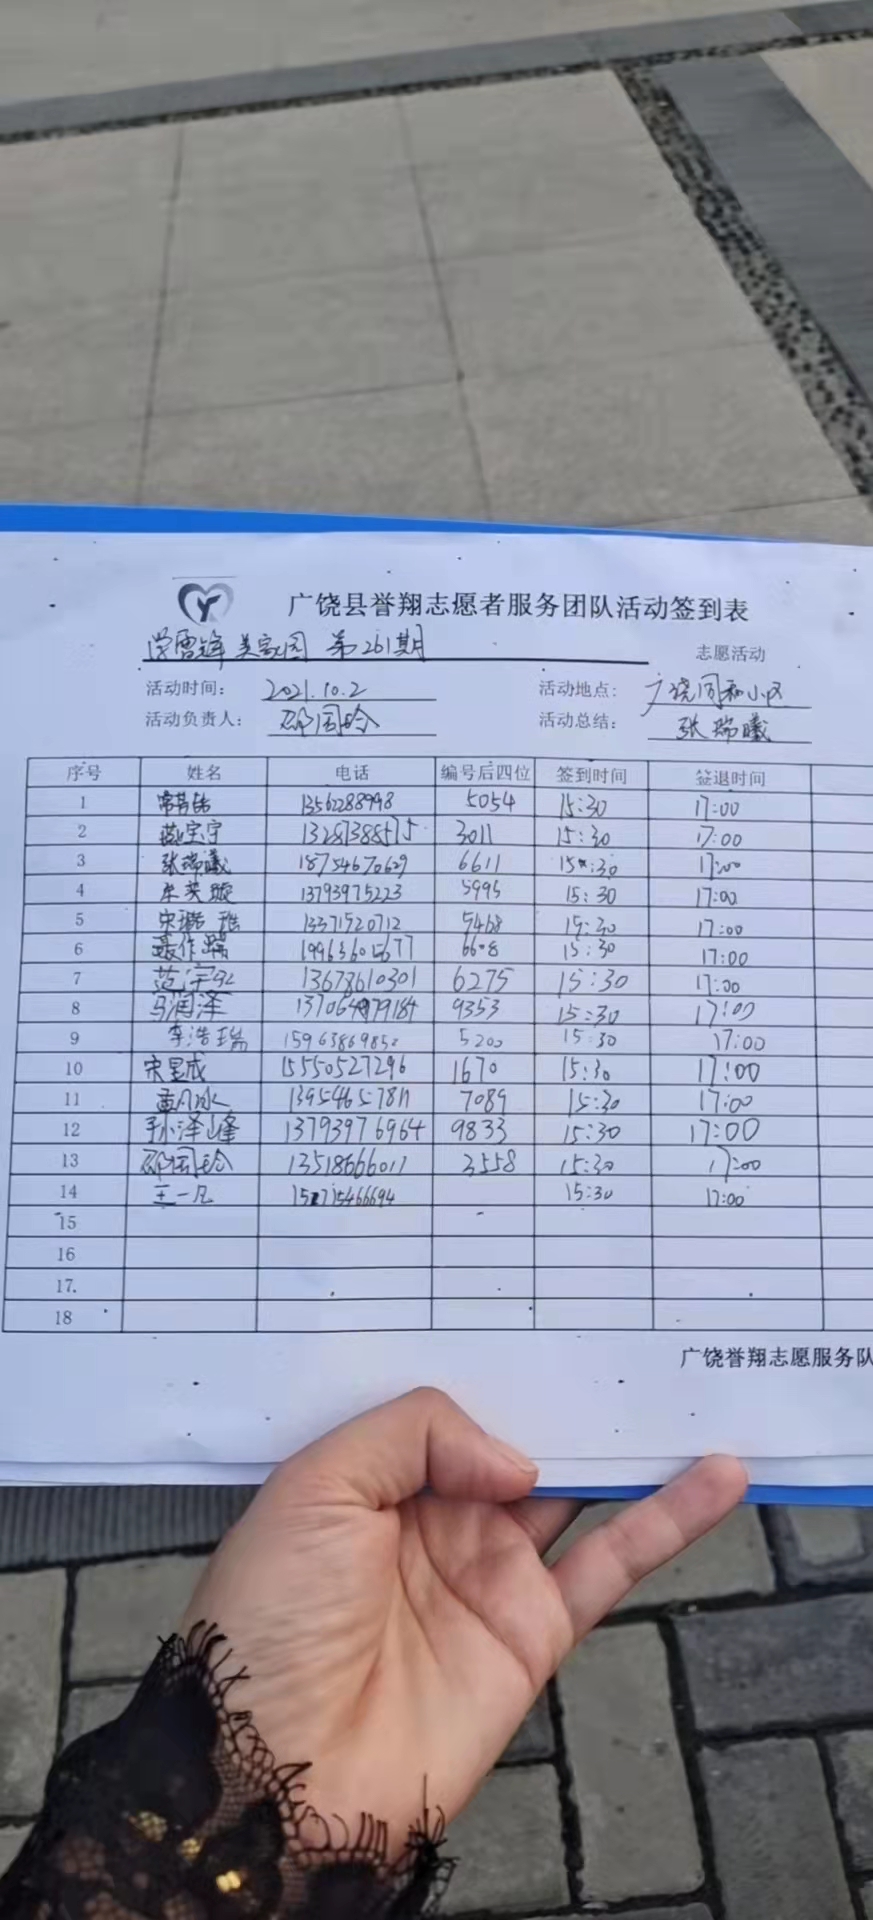 广饶县誉翔志愿者服务团队活动签到表
学雷锋 美家园 第261期 志愿活动
活动时间: 2021.10.2 活动地点: 广饶同和小区
活动负责人: 邵国玲 活动总结: 张瑞曦
序号 姓名 电话 编号后四位 签到时间 签退时间
1 13562288948 5054 15:30 17:00
2 燕宝宇 13287388575 3011 15:30 17:00
3 张瑞曦 18754670629 6611 15:30 17:00
4 13793975223 5995 15:30 17:00
5 13371520712 5468 15:30 17:00
6 聂作瑞 19963605677 6608 15:30 17:00
7 范宇 13678610301 6275 15:30 17:00
8 马润泽 9353 15:30 17:00
9 李浩瑞 15963869850 5200 15:30 17:00
10 宋昱成 15550527296 1670 15:30 17:00
11 孟凡冰 13954657811 7089 15:30 17:00
12 孙泽峰 13793976964 9833 15:30 17:00
13 邵国玲 13518666011 3558 15:30 17:00
14 王一凡 15715466694 15:30 17:00
15
16
17
18
广饶誉翔志愿服务队